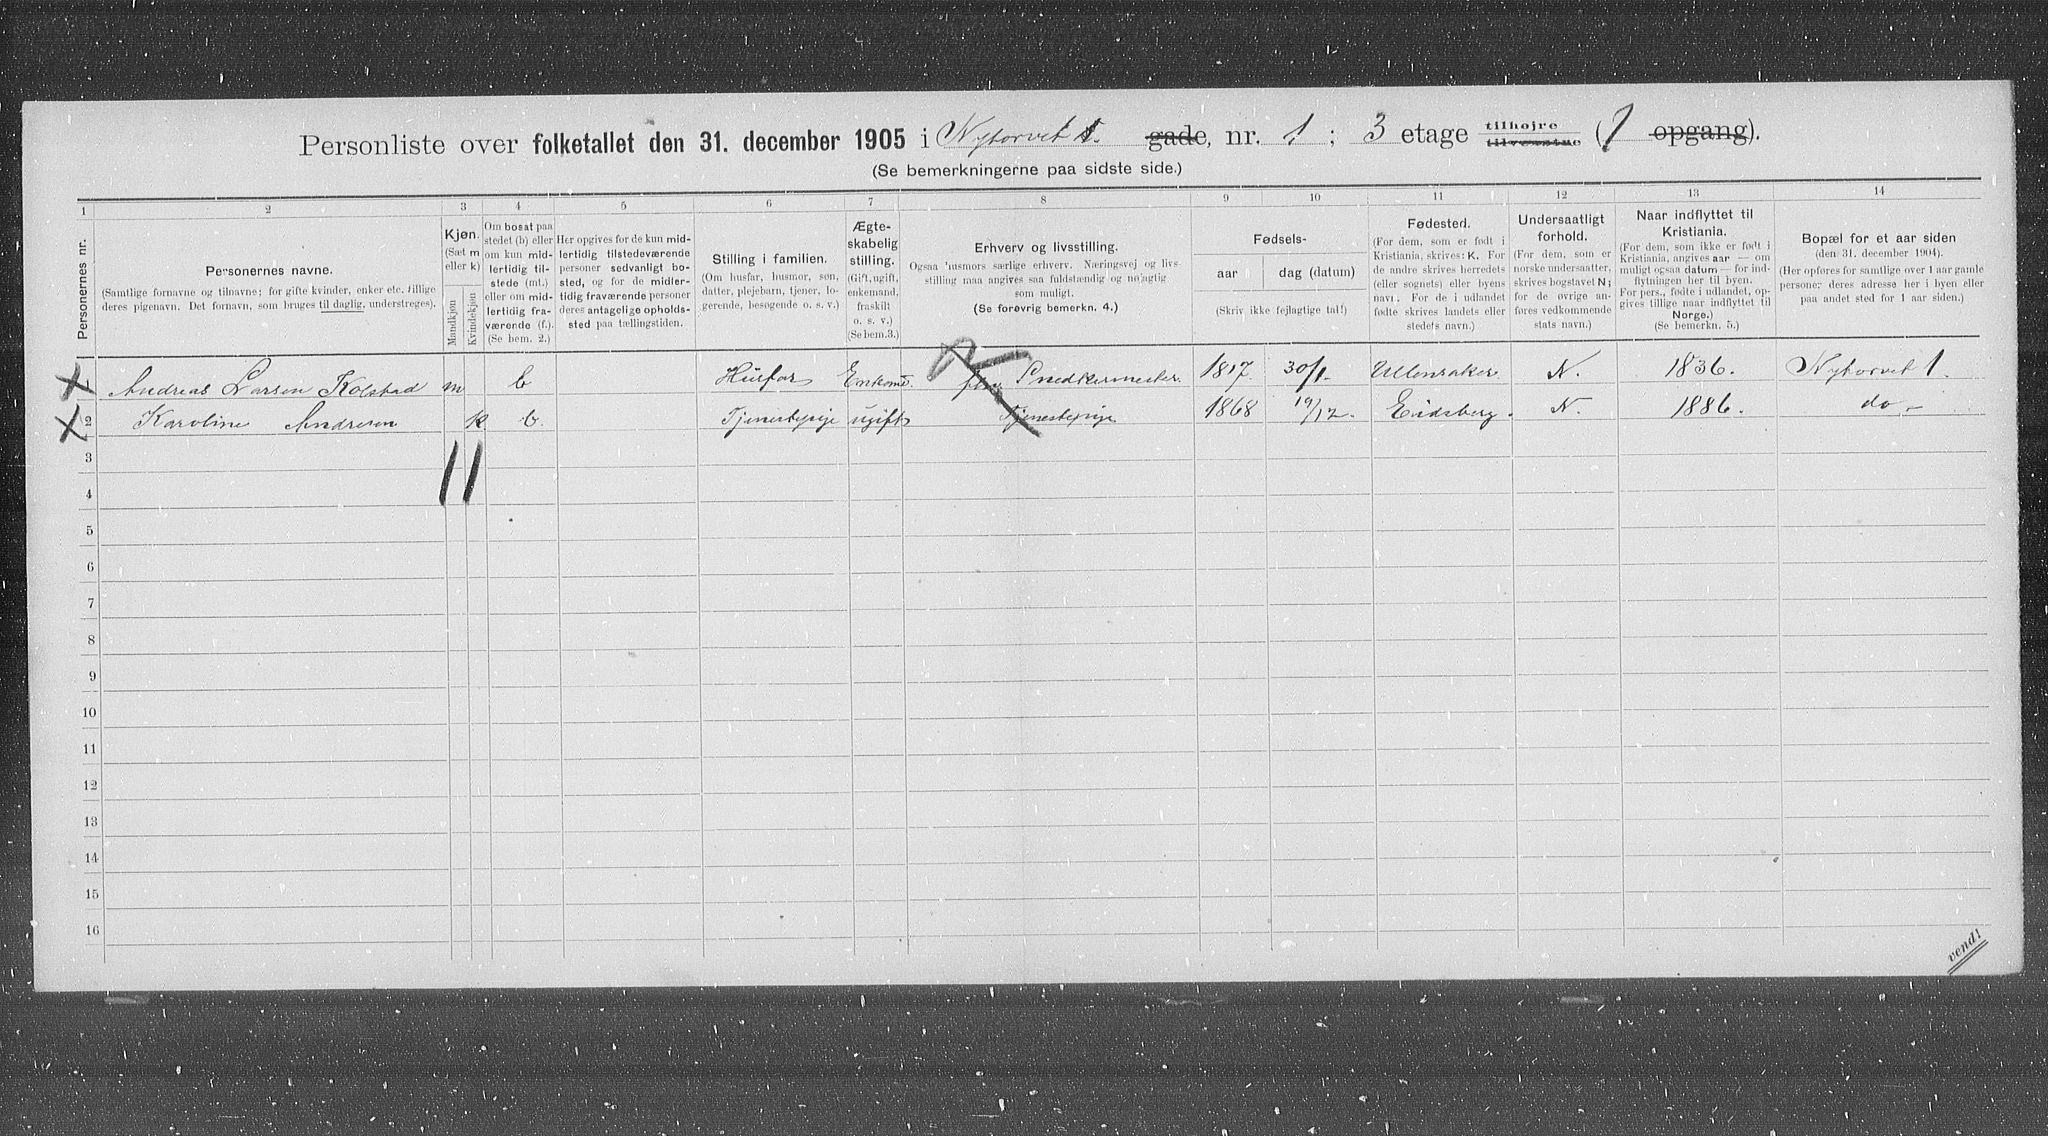 Personliste over folketallet den 31. december 1905 i Nytorvet 1. gade, nr. 1 ; 3 etage tilhøjre tilvenstre (1 opgang).
(Se bemerkningerne paa sidste side.)
1 2 3 4 5 6 7 8 9 10 11 12 13 14
Personernes nr.
Personernes navne.
(Samtlige fornavne og tilnavne; for gifte kvinder, enker etc. tillige
deres pigenavn. Det fornavn, som bruges til daglig, understreges).
Kjøn.
(Sæt m
eller k)
Mandkjøn
Kvindekjøn
Om bosat paa
stedet (b) eller
om kun mid-
lertidig til-
stede (mt.)
eller om mid-
lertidig fra-
værende (f.).
(Se bem. 2.)
Her opgives for de kun mid-
lertidig tilstedeværende
personer sedvanligt bo-
sted, og for de midler-
tidig fraværende personer
deres antagelige opholds-
sted paa tællingstiden.
Stilling i familien.
(Om husfar, husmor, søn,
datter, plejebarn, tjener, lo-
gerende, besøgende o. s. v.)
Ægte-
skabelig
stilling.
(Gift, ugift,
enkemand,
fraskilt
o. s. v.)
(Se bem.3.)
Erhverv og livsstilling.
Ogsaa husmors særlige erhverv. Næringsvej og livs-
stilling maa angives saa fuldstændig og nøjagtig
som muligt.
(Se forøvrig bemerkn. 4.)
Fødsels-
aar dag (datum)
(Skriv ikke fejlagtige tal!)
Fødested.
(For dem, som er født i
Kristiania, skrives: K. For
de andre skrives herredets
(eller sognets) eller byens
navn. For de i udlandet
fødte skrives landets eller
stedets navn.)
Undersaatligt
forhold.
(For dem, som er
norske undersaatter,
skrives bogstavet N;
for de øvrige an-
føres vedkommende
stats navn.)
Naar indflyttet til
Kristiania.
(For dem, som ikke er født i
Kristiania, angives aar — om
muligt ogsaa datum — for ind-
flytningen her til byen.
For pers., fødte i udlandet, op-
gives tillige naar indflyttet til
Norge.)
(Se bemerkn. 5.)
Bopæl for et aar siden
(den 31. december 1904).
(Her opføres for samtlige over 1 aar gamle
personer deres adresse her i byen eller
paa andet sted for 1 aar siden.)
1 Andreas Larsen Kolstad m b Husfar Enkemd. Snedkermester 1817 30/1. Ullensaker N. 1836. Nytorvet 1.
2 Karoline Andresen k b. Tjenestepige ugift Tjenestepige 1868 19/12. Eidsberg. N. 1886. do –
3
4
5
6
7
8
9
10
11
12
13
14
15
16
vend!